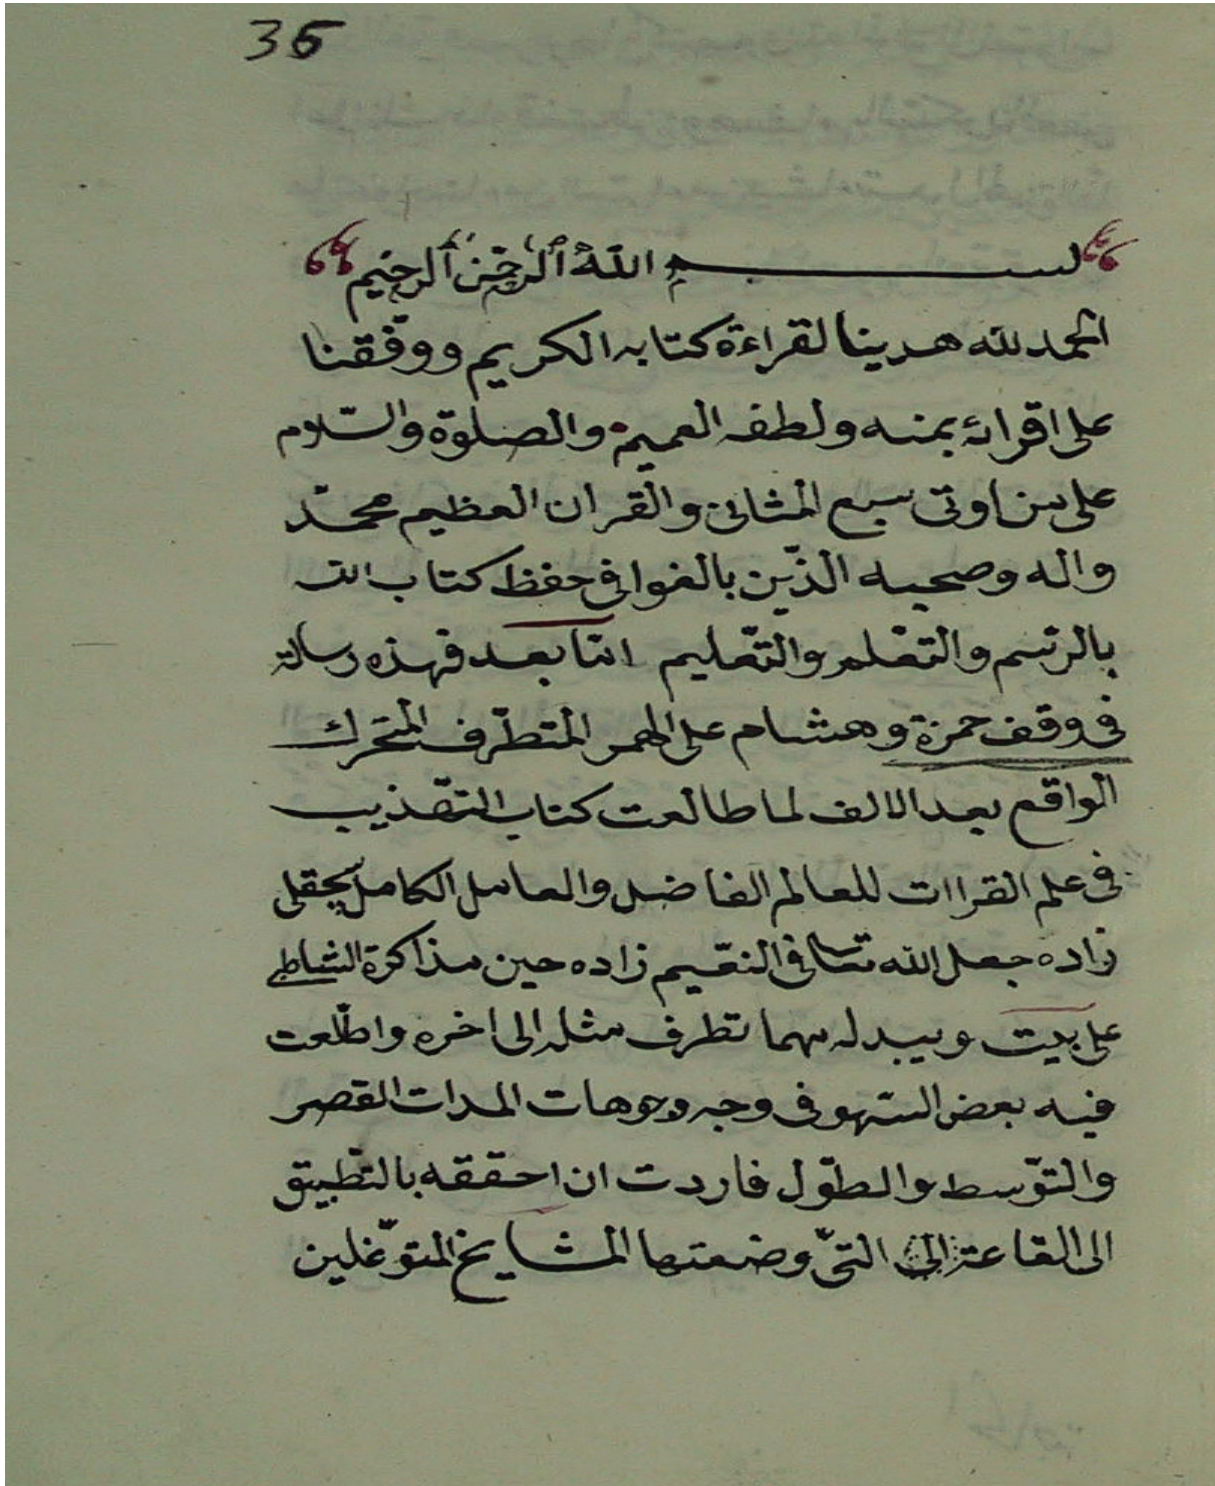 35
بسم الله الرحمن الرحيم
الحمد لله هدينا لقراءة كتابه الكريم ووفقنا
على اقرائه بمنه ولطفه العميم والصلوة والسّلام
على من اوتى سبع المثانى والقران العظيم محمّد
واله وصحبه الذّين بالغوا فى حفظ كتاب الله
بالرّسم والتعّلم والتّعليم امّا بعد فهذه رسالة
فى وقف حمزة وهشام على الهمز المتطّرف المتحرك
الواقع بعد الالف لما طالعت كتاب التهّذيب
فى علم القراات للعالم الفاضل والعامل الكامل
زاده جعل الله تعالى فى النعّيم زاده حين مذاكرة الشاطبى
على بيت ويبدله مهما تطرف مثله الى اخره واطّلعت
فيه بعض السّهو فى وجه وجوهات المدات القصر
والتوّسط والطوّل فاردت ان احققه بالتّطبيق
الى القاعة التىّ وضعتها المشايخ المتوّغلين